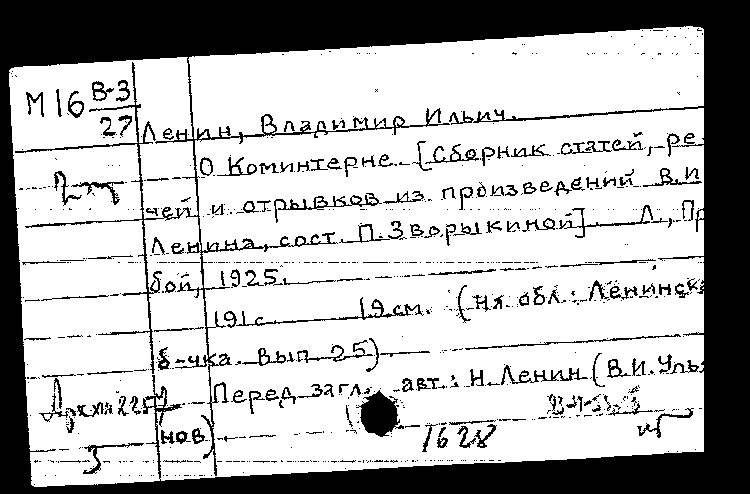 М16 В-3
27
Ленин, Владимир Ильич.
О Коминтерне. [Сборник статей, ре-
чей и отрывков из произведений В.И
Ленина, сост. П. Зворыкиной]. Л., Пр
бой, 1925.
191 с. 19 см. (На обл.: Ленинска
б-чка. Вып. 25).
Перед загл. авт.: Н. Ленин (В.И. Улья
нов).
1628
3